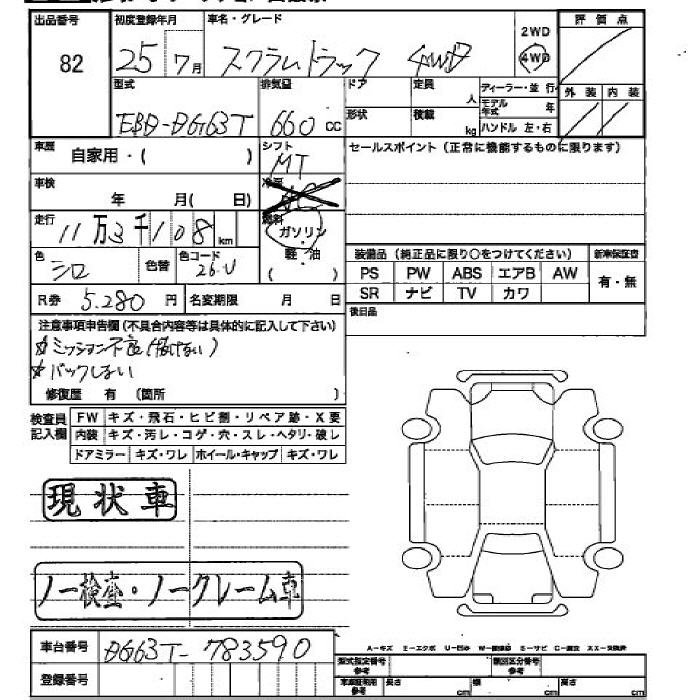 出品番号 初度登録年月 車名・グレード 評価点
82 25 7月 スクラムトラック 4WD 2WD 4WD
外装 内装
型式 排気量 ドア 定員 人 ディーラー・並行
EBD-DG63T 660cc 形状 積載 kg モデル年式 年
ハンドル 左・右
車歴 自家用・( ) シフト MT セールスポイント(正常に機能するものに限ります)
車検 年 月( 日) 冷房 AC
走行 11万3千108km 燃料 ガソリン・軽・油 ( )
装備品(純正品に限り○をつけてください) 新車保証書
色 シロ 色替 色コード 26U
PS PW ABS エアB AW 有・無
SR ナビ TV カワ
R券 5.280円 名変期限 月 日
後日品
注意事項申告欄(不具合内容等は具体的に記入して下さい)
☆ミッション不良
☆バックしない
修復歴 有 (箇所 )
検査員記入欄 FW キズ・飛石・ヒビ割・リペア跡・X要
内装 キズ・汚レ・コゲ・穴・スレ・ヘタリ・破レ
ドアミラー キズ・ワレ ホイール・キャップ キズ・ワレ
現状車
ノー検査・ノークレーム車
車台番号 DG63T-783590
登録番号
A-キズ E-エクボ
型式指定番号 参考 類別区分番号 参考
車庫証明用 参考 長さ cm 幅 cm 高さ cm